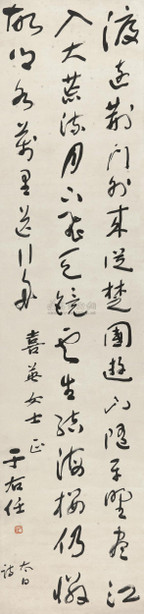 渡遠荊門外來從楚國遊山隨平野盡江
入大荒流月下飛天鏡雲生結海樓仍憐
故鄉水萬里送行舟
喜英女士正
于右任
太白詩